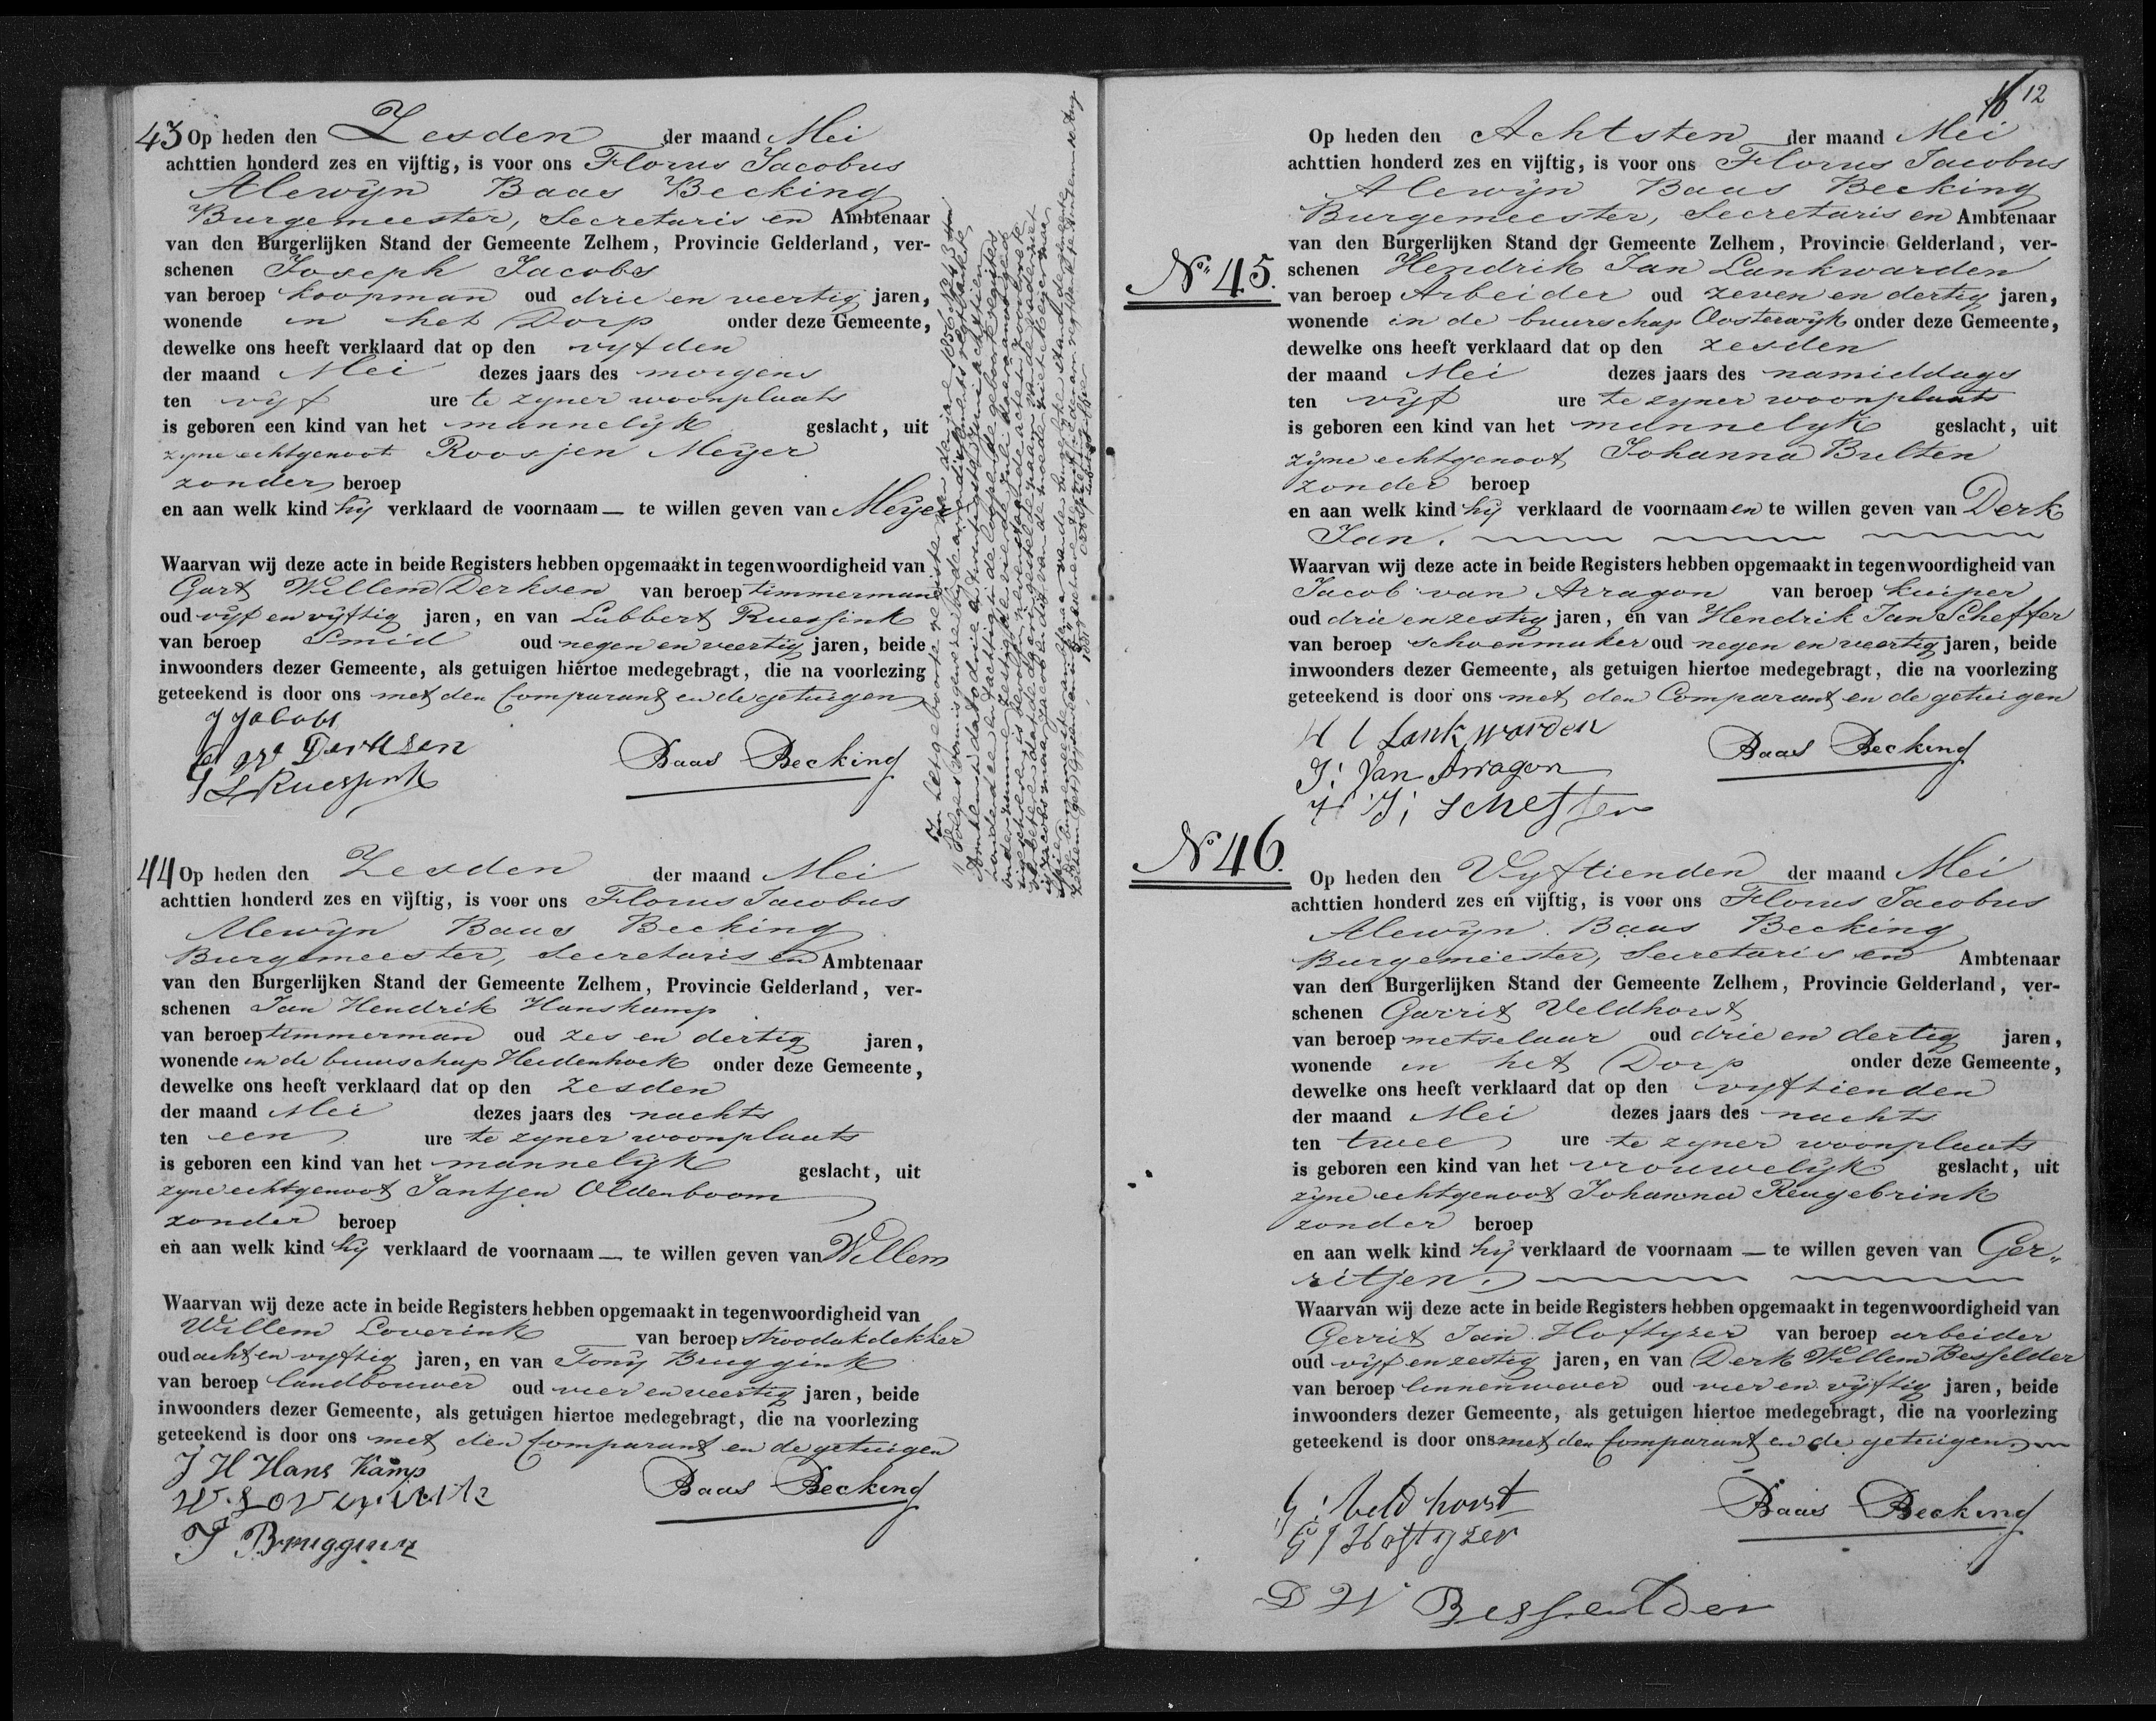 43 Op heden den Zesden der maand Mei
achttien honderd zes en vijftig, is voor ons Florus Jacobus
Alewijn Baas Becking
Burgemeester, Secretaris en Ambtenaar
van den Burgerlijken Stand der Gemeente Zelhem, Provincie Gelderland, ver-
schenen Joseph Jacobs
van beroep koopman oud drie en veertig jaren,
wonende in het Dorp onder deze Gemeente,
dewelke ons heeft verklaard dat op den vyfden
der maand Mei dezes jaars des morgens
ten vyf ure te zyner woonplaats
is geboren een kind van het mannelijk geslacht, uit
zyne echtgenoot Roosjen Meyer
zonder beroep
en aan welk kind hij verklaard de voornaam — te willen geven van Meyer
Waarvan wij deze acte in beide Registers hebben opgemaakt in tegenwoordigheid van
Gart Willem Derksen van beroep timmerman
oud vyf en vyftig jaren, en van Lubbert Ruessink
van beroep Smid oud negen en veertig jaren, beide
inwoonders dezer Gemeente, als getuigen hiertoe medegebragt, die na voorlezing
geteekend is door ons met den Comparant en de getuigen
J Jacobs
Derksen
L Ruessink
Baas Becking
44 Op heden den Zesden der maand Mei
achttien honderd zes en vijftig, is voor ons Florus Jacobus
Alewyn Baas Becking
Burgemeester, Secretaris en Ambtenaar
van den Burgerlijken Stand der Gemeente Zelhem, Provincie Gelderland, ver-
schenen Jan Hendrik Hanskamp
van beroep timmerman oud zes en dertig jaren,
wonende in de buurschap Heidenhoek onder deze Gemeente,
dewelke ons heeft verklaard dat op den zesden
der maand Mei dezes jaars des nachts
ten een ure te zyner woonplaats
is geboren een kind van het mannelijk geslacht, uit
zyne echtgenoot Jantjen Oldenboom
zonder beroep
en aan welk kind hij verklaard de voornaam — te willen geven van Willem
Waarvan wij deze acte in beide Registers hebben opgemaakt in tegenwoordigheid van
Willem Loverink van beroep stroodakdekker
oud acht en vyftig jaren, en van Tony Bruggink
van beroep landbouwer oud vier en veertig jaren, beide
inwoonders dezer Gemeente, als getuigen hiertoe medegebragt, die na voorlezing
geteekend is door ons met den Comparant en de getuigen
J H Hans Kamp
W. Loverink
T Bruggink
Baas Becking
12
No 45.
Op heden den Achtsten der maand Mei
achttien honderd zes en vijftig, is voor ons Florus Jacobus
Alewyn Baas Becking
Burgemeester, Secretaris en Ambtenaar
van den Burgerlijken Stand der Gemeente Zelhem, Provincie Gelderland, ver-
schenen Hendrik Jan Lankwarden
van beroep Arbeider oud zeven en dertig jaren,
wonende in de buurschap Oosterwyk onder deze Gemeente,
dewelke ons heeft verklaard dat op den zesden
der maand Mei dezes jaars des namiddags
ten vijf ure te zyner woonplaats
is geboren een kind van het mannelyk geslacht, uit
zyne echtgenoot Johanna Bulten
zonder beroep
en aan welk kind hij verklaard de voornaamen te willen geven van Derk
Jan.
Waarvan wij deze acte in beide Registers hebben opgemaakt in tegenwoordigheid van
Jacob van Arragon van beroep kuiper
oud drie en zestig jaren, en van Hendrik Jan Scheffer
van beroep schoenmaker oud negen en veertig jaren, beide
inwoonders dezer Gemeente, als getuigen hiertoe medegebragt, die na voorlezing
geteekend is door ons met den Comparant en de getuigen
Lankwarden
J: Van Arragon
H J: Scheffer
Baas Becking
No 46.
Op heden den Vyftienden der maand Mei
achttien honderd zes en vijftig, is voor ons Florus Jacobus
Alewyn Baas Becking
Burgemeester, Secretaris en Ambtenaar
van den Burgerlijken Stand der Gemeente Zelhem, Provincie Gelderland, ver-
schenen Garrit Veldhorst
van beroep metselaar oud drie en dertig jaren,
wonende in het Dorp onder deze Gemeente,
dewelke ons heeft verklaard dat op den vyftienden
der maand Mei dezes jaars des nachts
ten twee ure te zyner woonplaats
is geboren een kind van het vrouwelijk geslacht, uit
zyne echtgenoot Johanna Reugebrink
zonder beroep
en aan welk kind hij verklaard de voornaam — te willen geven van Ger„
ritjen.
Waarvan wij deze acte in beide Registers hebben opgemaakt in tegenwoordigheid van
Gerrit Jan Hoftyzer van beroep arbeider
oud vijf en zestig jaren, en van Derk Willem Besselder
van beroep linnenwever oud vier en vijftig jaren, beide
inwoonders dezer Gemeente, als getuigen hiertoe medegebragt, die na voorlezing
geteekend is door ons met den Comparant en de getuigen
G: Veldhorst
G J Hoftyzer
D W Besselder
Baas Becking